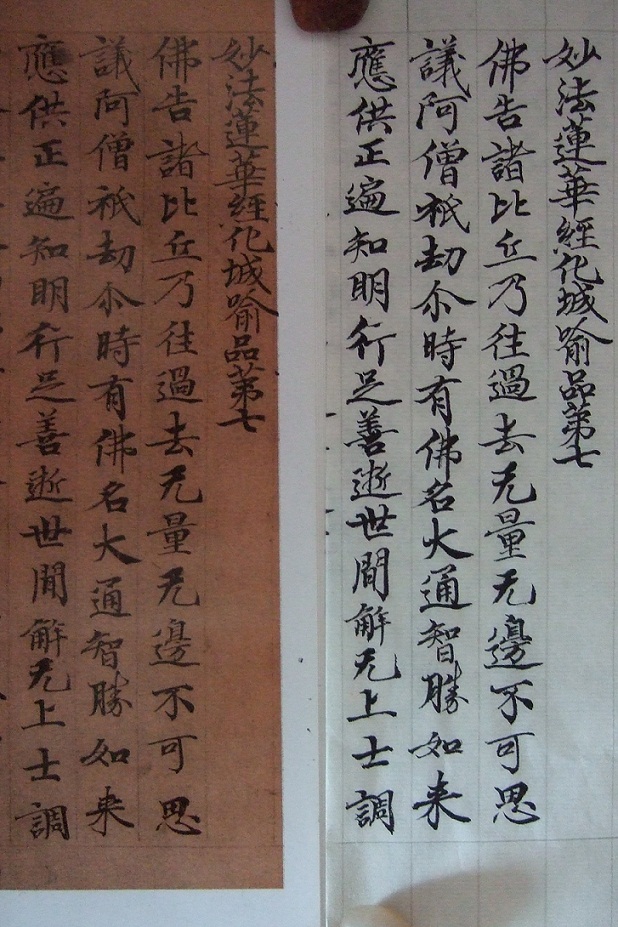 妙法蓮華經化城喻品第七
佛告諸比丘乃往過去无量无邊不可思
議阿僧祇劫尒時有佛名大通智勝如来
應供正遍知明行足善逝世間解无上士調
妙法蓮華經化城喻品第七
佛告諸比丘乃往過去无量无邊不可思
議阿僧祇劫尒時有佛名大通智勝如来
應供正遍知明行足善逝世間解无上士調